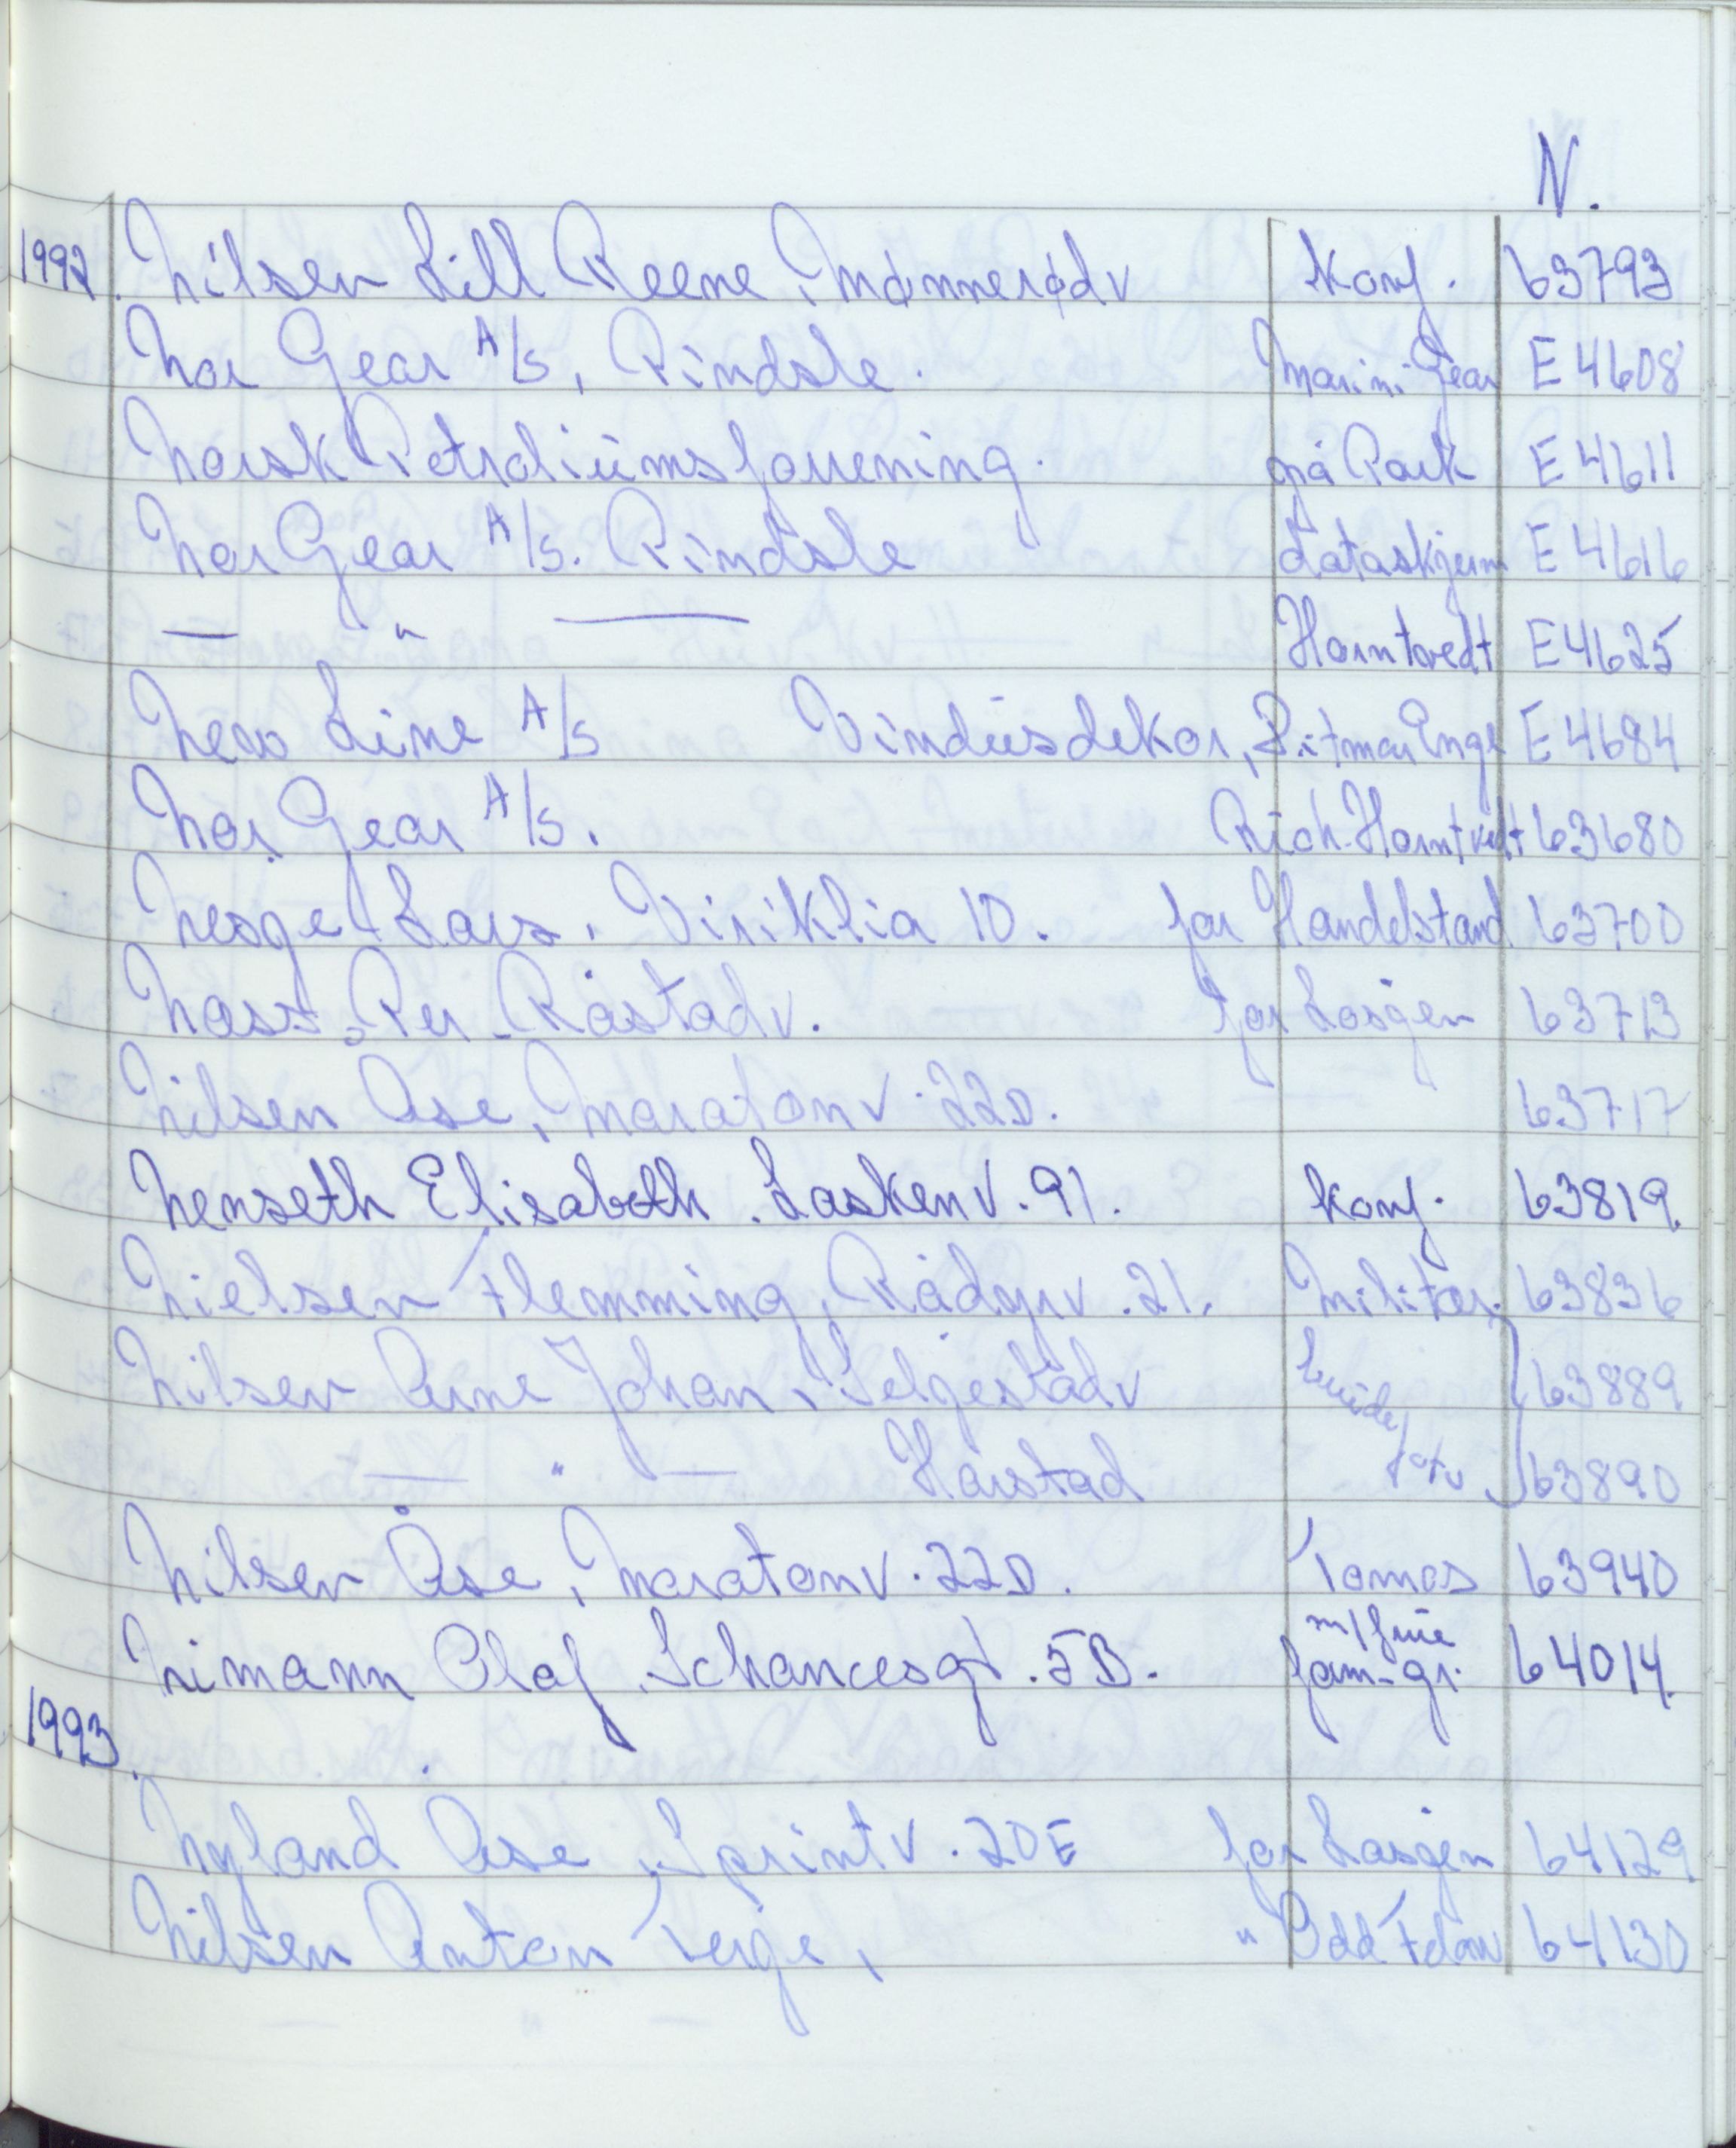 N.
1992. Nilsen Lill Reene, Mønnerødv Konf. 63793
Nor Gear A/S, Pindsle. Marin. Gear E 4608
Norsk Petroliumsforening. på Park E 4611
Nor Gear A/S. Pindsle dataskjerm E 4616
— " — Horntvedt E 4625
New Line A/S Vindusdekor, Bitmar Enge E 4684
Nor Gear A/S. Rich. Horntvedt 63680
Nesget Lars, Viriklia 10. for Handelstand 63700
Noss, Per Råstadv. for Losjen 63713
Nilsen Åse, Maratonv. 22D. 63717
Nenseth Elisabeth. Laskenv. 91. Konf. 63819.
Nielsen Flemming, Rådyrv. 21. Militær. 63836
Nilsen Arne Johan, Selgestadv brude 63889.
— " — Harstad foto 63890
Nilsen Åse, Maratonv. 22D. Tomas 63940
m/frue
Nimann Olaf, Schancesgt. 5B. fam-gr. 64014.
1993.
Nyland Åse, Sprintv. 20E for Losjen 64129
Nilsen Anton Terje, " Odd Felow 64130